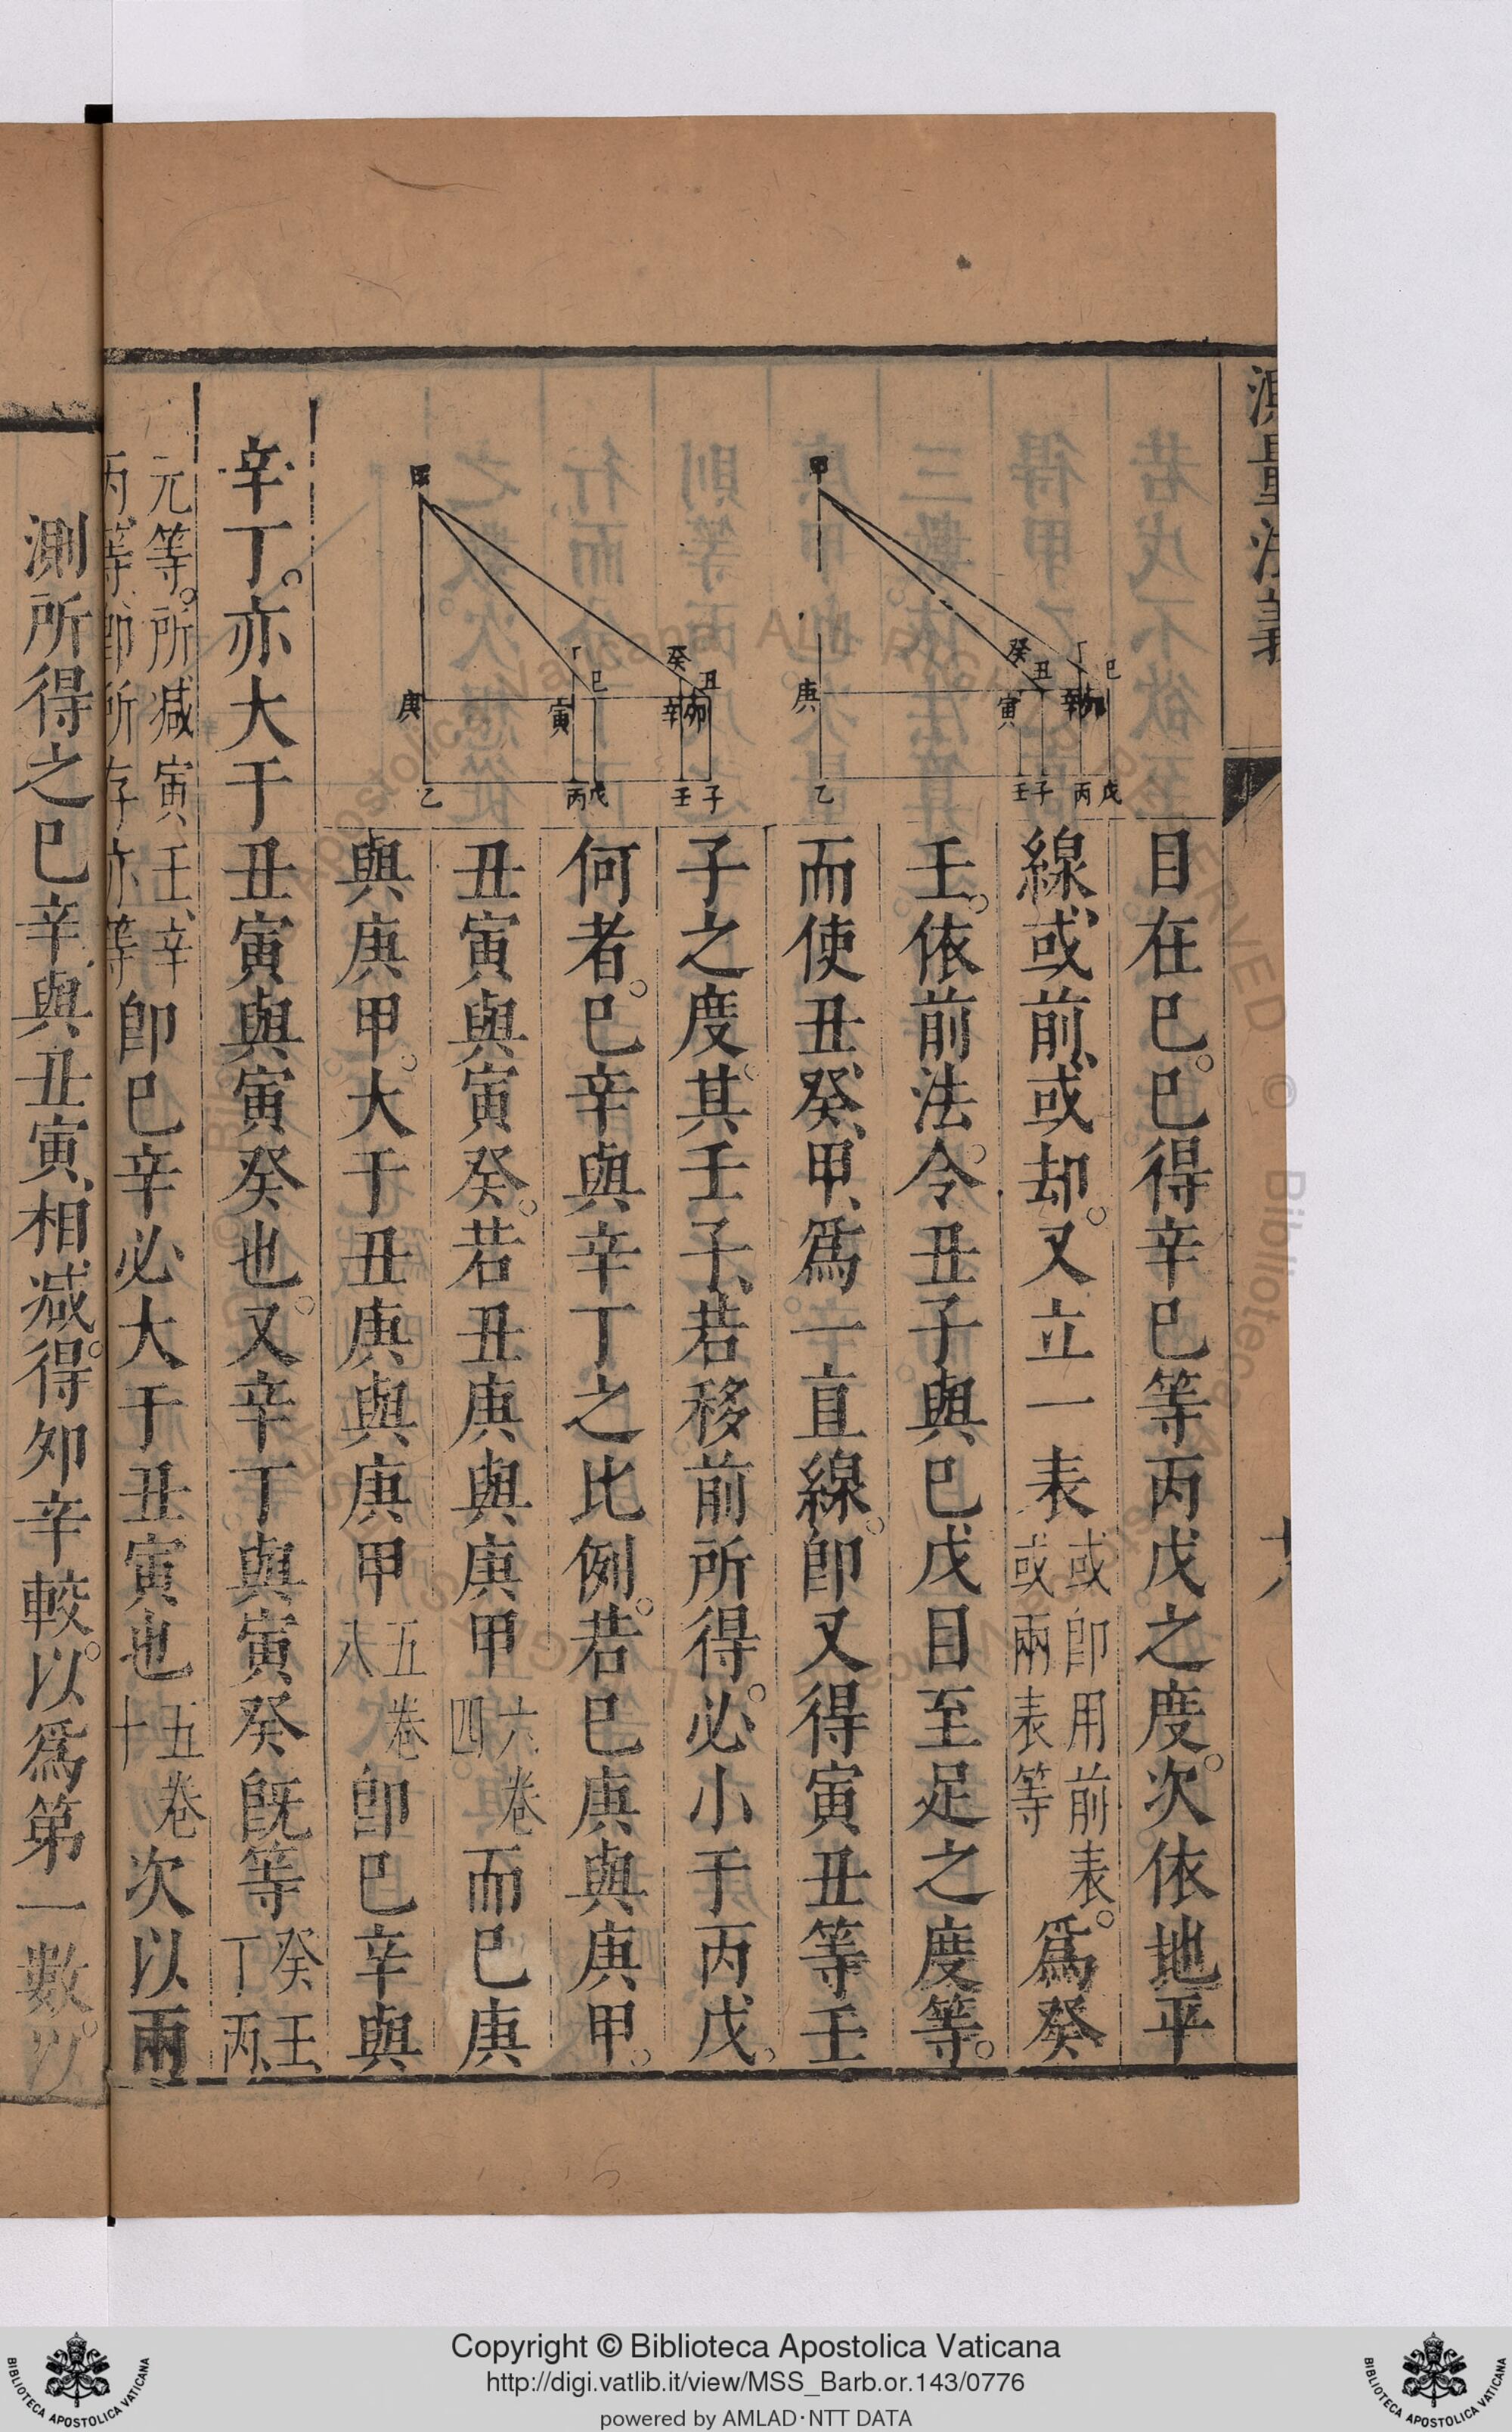 測量法義
目在巳。巳得辛巳等丙戊之度。次依地平
線或前、或却。又立一表或即用前表。或兩表等爲癸
壬。依前法。令丑子與巳戊目至足之度等。
而使丑、癸、甲、爲一直線。卽又得寅丑等壬
子之度。其壬子、若移前所得。必小于丙戊。
何者。巳辛與辛丁之比例。若巳庚與庚甲。
丑寅與寅癸。若丑庚與庚甲六卷四而巳庚
與庚甲。大于丑庚與庚甲五卷八卽巳辛與
辛丁。亦大于丑寅與寅癸也。又辛丁與寅癸旣等癸壬、丁丙、
元等。所減寅壬、辛丙、等卽所存亦等卽巳辛必大于丑寅也五卷十次以兩
測所得之巳辛、與丑寅、相減。得夘辛較。以爲第一數。以
甲
庚
乙
癸
丑
寅
壬
子
丁
巳
辛
夘
丙
戊
甲
庚
乙
丁
巳
寅
丙
戊
癸
丑
辛
夘
壬
子
Copyright © Biblioteca Apostolica Vaticana
http://digi.vatlib.it/view/MSS_Barb.or.143/0776
powered by AMLAD·NTT DATA
BIBLIOTECA APOSTOLICA VATICANA
BIBLIOTECA APOSTOLICA VATICANA